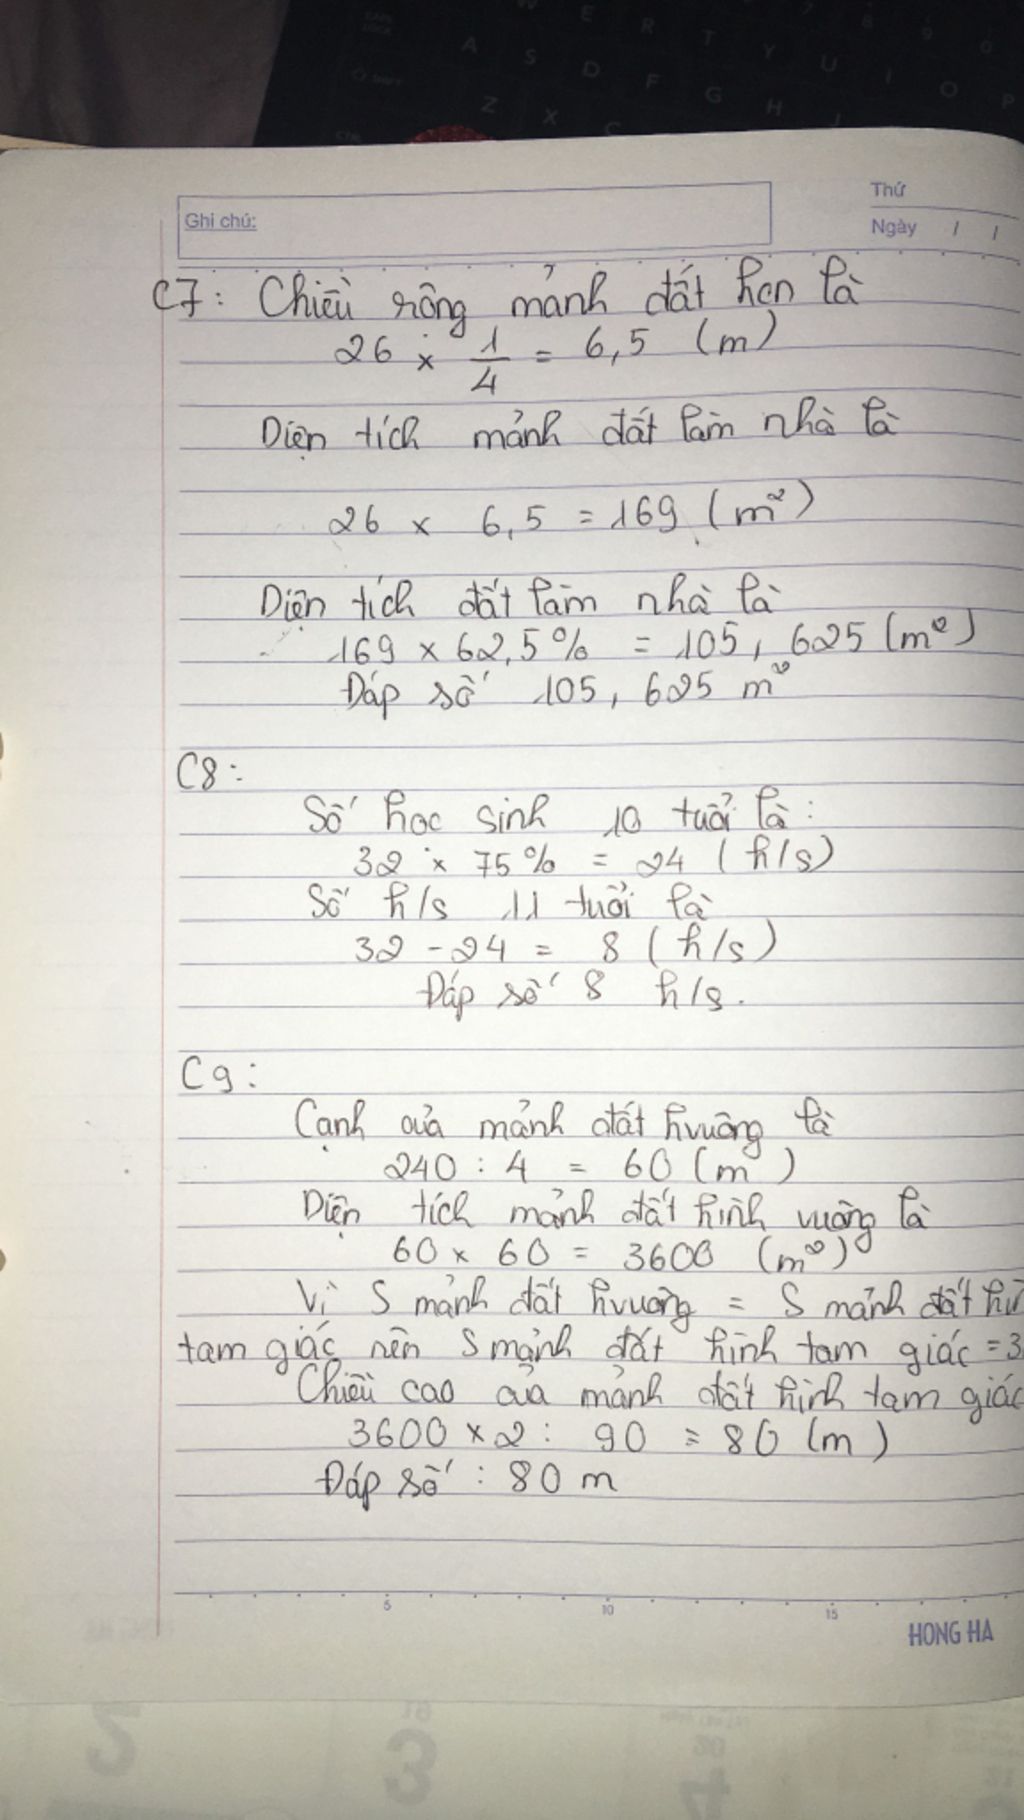 Thứ
Ghi chú:
Ngày / /
C7: Chiều rộng mảnh đất hcn là
26 × 1/4 = 6,5 (m)
Diện tích mảnh đất làm nhà là
26 × 6,5 = 169 (m²)
Diện tích đất làm nhà là
169 × 62,5% = 105,625 (m²)
Đáp số 105,625 m²
C8:
Số học sinh 10 tuổi là:
32 × 75% = 24 (h/s)
Số h/s 11 tuổi là
32 - 24 = 8 (h/s)
Đáp số 8 h/s.
C9:
Cạnh của mảnh đất hvuông là
240 : 4 = 60 (m)
Diện tích mảnh đất hình vuông là
60 × 60 = 3600 (m²)
Vì S mảnh đất hvuông = S mảnh đất
tam giác nên S mảnh đất hình tam giác = 3
Chiều cao của mảnh đất hình tam giác
3600 × 2 : 90 = 80 (m)
Đáp số : 80 m
5 10 15
HONG HA